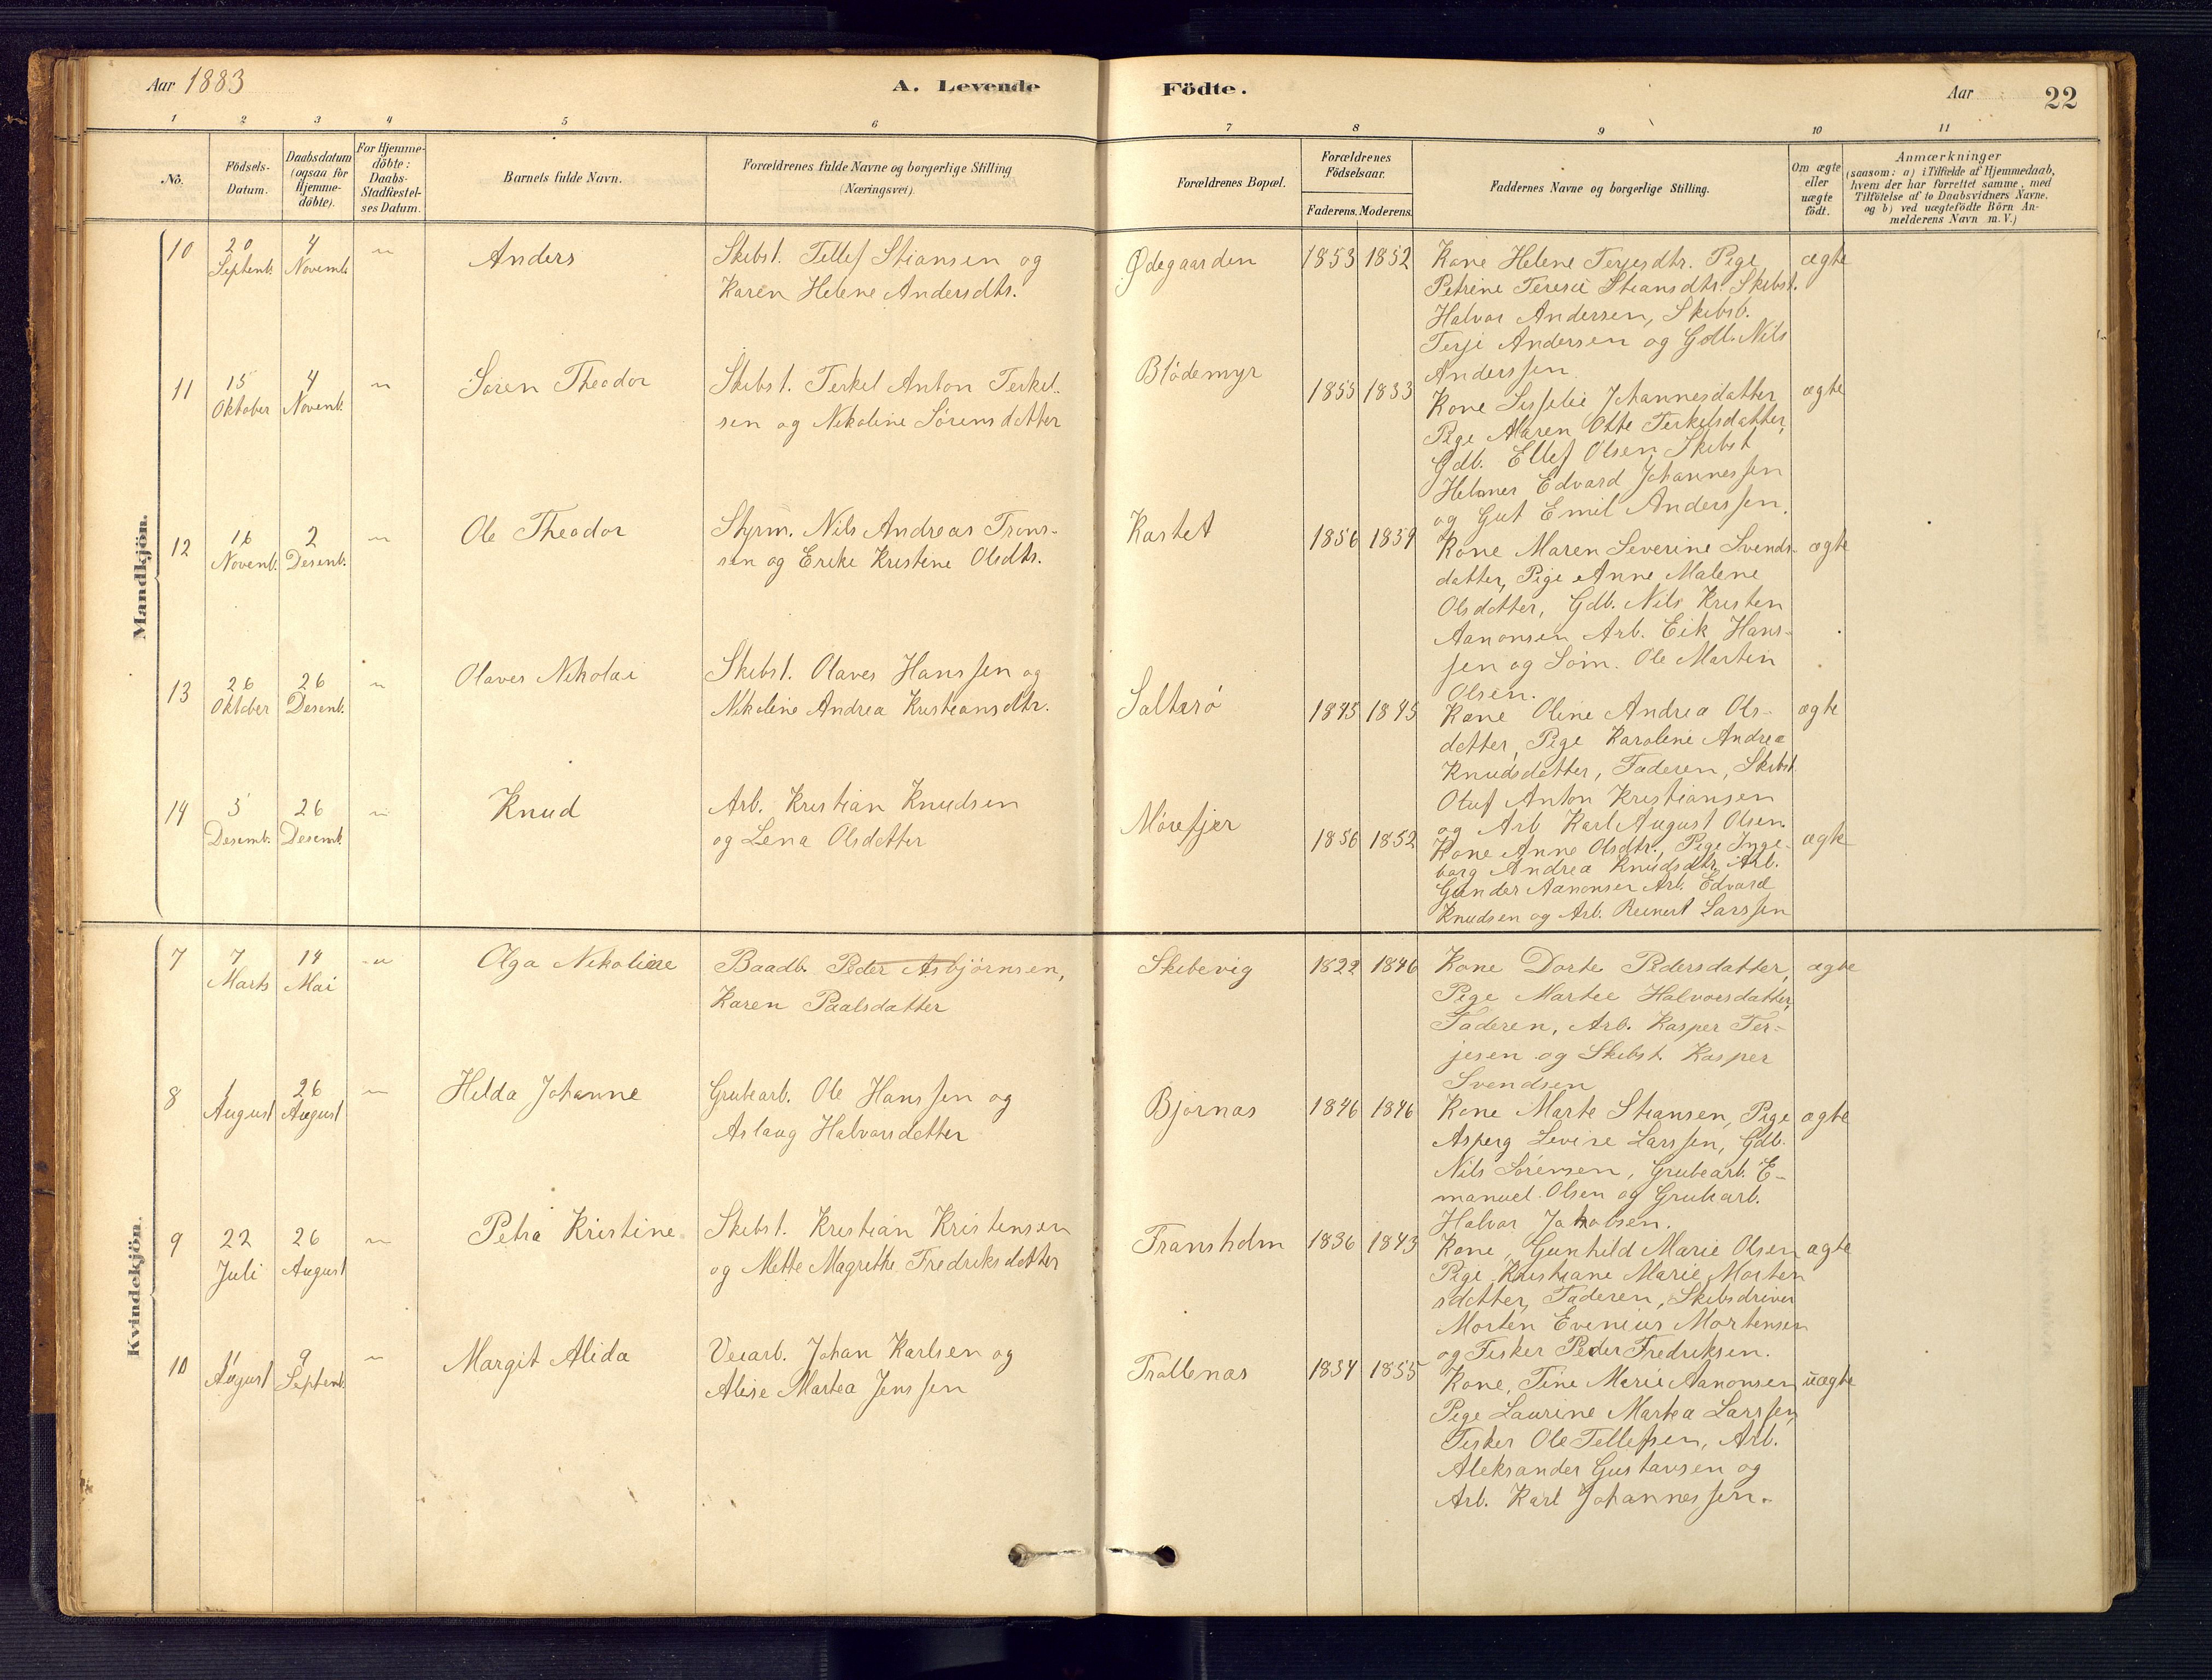 Aar 1883
A. Levende
Födte.
Aar
22
1 2 3 4 5 6 7 8 9 10 11
No.
Födsels-
Datum.
Daabsdatum
(ogsaa for
Hjemme-
döbte).
For Hjemme-
döbte:
Daabs-
Stadfæstel-
ses Datum.
Barnets fulde Navn.
Forældrenes fulde Navne og borgerlige Stilling
(Næringsvei).
Forældrenes Bopæl.
Forældrenes
Födselsaar.
Faderens. Moderens.
Faddernes Navne og borgerlige Stilling.
Om ægte
eller
uægte
födt.
Anmærkninger
(saasom: a) i Tilfælde af Hjemmedaab,
hvem der har forrettet samme, med
Tilföielse af to Daabsvidners Navne,
og b) ved uægtefödte Börn An-
melderens Navn m. V.)
Mandkjön.
10
20
Septemb.
4
Novemb.
"
Anders
Skibst. Tellef Stiansen og
Karen Helene Andersdtr.
Ødegaarden
1853 1852
Kone Helene Terjesdtr. Pige
Petrine Terese Stiansdtr. Skibst.
Halvor Andersen, Skibsb.
Terje Andersen og Gdb. Nils
Anderssen
ægte
11
15
Oktober
4
Novemb.
"
Sören Theodor
Skibst. Terkel Anton Terkel-
sen og Nikoline Sørensdatter
Blödemyr
1855 1853
Kone Sisselie Johannesdatter
Pige Maren Otte Terkelsdatter,
Gdb. Ellef Olsen Skibst
Helmer Edvard Johannessen
og Gut Emil Anderssen.
ægte
12
16
Novemb.
2
Desemb.
"
Ole Theodor
Styrm. Nils Andreas Trons-
sen og Erike Kristine Olsdtr.
Kastet
1856 1859
Kone Maren Severine Svends-
datter, Pige Anne Malene
Olsdatter, Gdb. Nils Kristen
Aanonsen Arb. Eik Hans-
sen og Söm. Ole Martin
Olsen.
ægte
13
26
Oktober
26
Desemb.
"
Olaves Nikolai
Skibst. Olaves Hanssen og
Nikoline Andrea Kristiansdtr.
Salterö
1845 1845
Kone Oline Andrea Ols-
datter, Pige Karoline Andrea
Knudsdatter, Faderen, Skibst
Oluf Anton Kristiansen
og Arb Karl August Olsen
ægte
14
5
Desemb.
26
Desemb.
"
Knud
Arb. Kristian Knudsen
og Lena Olsdatter
Mörefjær
1856 1852
Kone Anne Olsdtr., Pige Inge-
borg Andrea Knudsdtr, Arb.
Gunder Aanonsen Arb. Edvard
Knudsen og Arb. Reinert Larssen
ægte
Kvindekjön.
7
7
Marts
14
Mai
"
Olga Nikoline
Baadb. Peder Asbjörnsen,
Karen Paalsdatter
Skibevig
1822 1846
Kone Dorte Pedersdatter,
Pige Martee Halvorsdatter,
Faderen, Arb. Kasper Ter-
jesen og Skibst. Kasper
Svendsen
ægte
8
1
August
26
August
"
Hilda Johanne
Grubearb. Ole Hanssen og
Aslaug Halvorsdatter
Björnæs
1846 1846
Kone Marte Stiansen, Pige
Asperg Levine Larssen, Gdb.
Nils Sörensen, Grubearb. E-
manuel Olsen og Grubearb.
Halvor Jakobsen.
ægte
9
22
Juli
26
August
"
Petra Kristine
Skibst. Kristian Kristensen
og Mette Magrethe Fredriksdatter
Fransholm
1836 1843
Kone, Gunhild Marie Olsen
Pige Kristiane Marie Morten
sdatter, Faderen, Skibsdriver
Morten Evenius Mortensen
og Fisker Peder Fredriksen.
ægte
10
11
August
9
Septemb.
"
Margit Alida
Veiarb. Johan Karlsen og
Alise Martea Jenssen
Trallenæs
1854 1855
Kone, Tine Marie Aanonsen
Pige Laurine Martea Larssen,
Fisker Ole Tellefsen, Arb.
Aleksander Gustavsen og
Arb. Karl Johannessen.
uægte